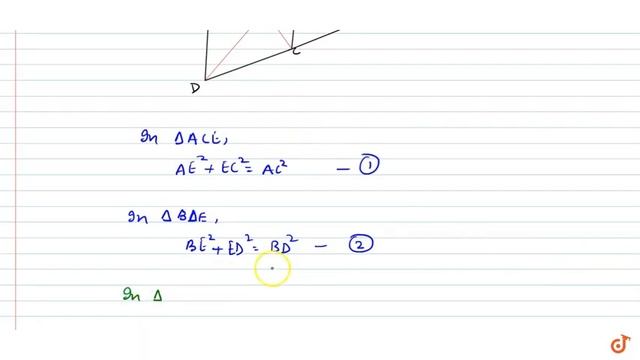 C
D
In ΔACE,
AE²+EC²= AC² — ①
In ΔBΔE,
BE²+ED²= BD² — ②
In Δ